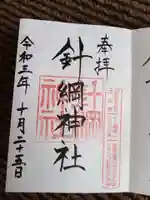 奉拝
針綱神社
令和三年十月二十五日